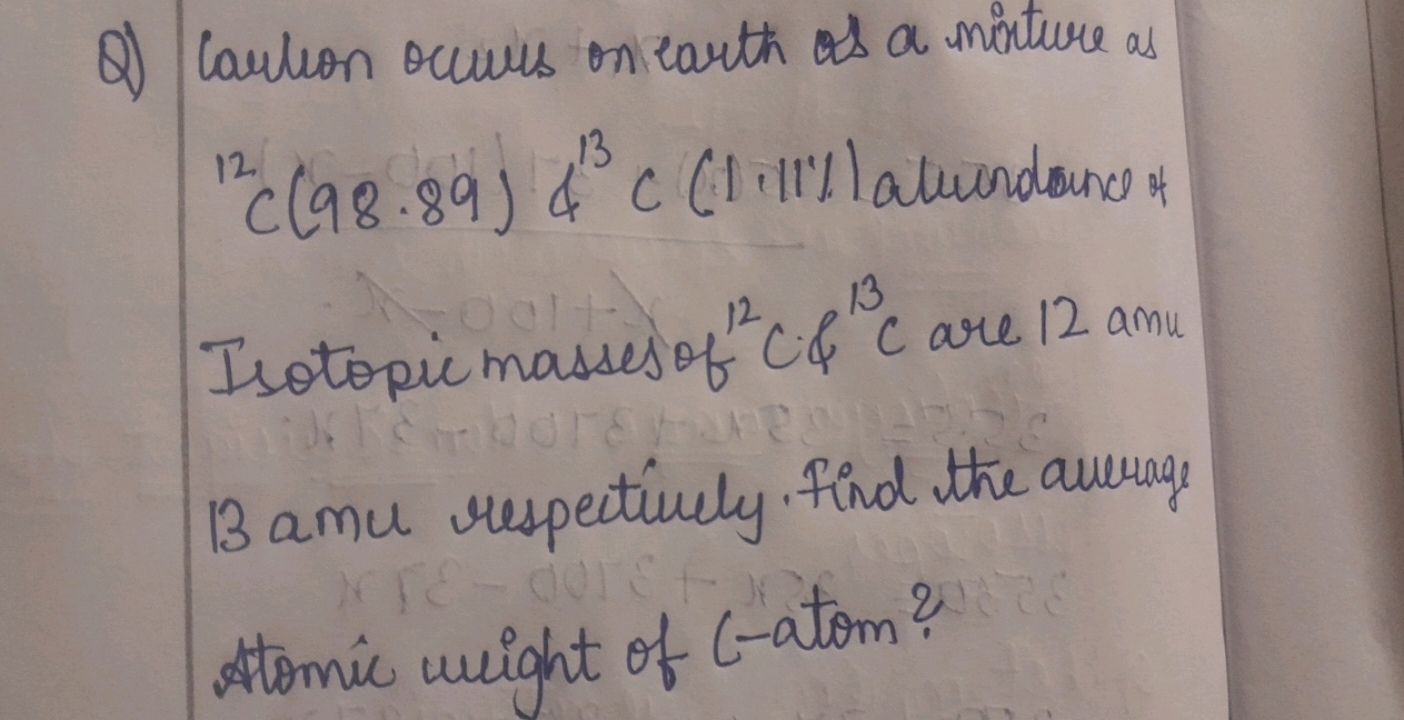 Q) Carbon occurs on earth as a mixture as
¹²C(98.89) & ¹³C (1.11%) abundance of
Isotopic masses of ¹²C & ¹³C are 12 amu
13 amu respectively. Find the average
Atomic weight of C-atom?